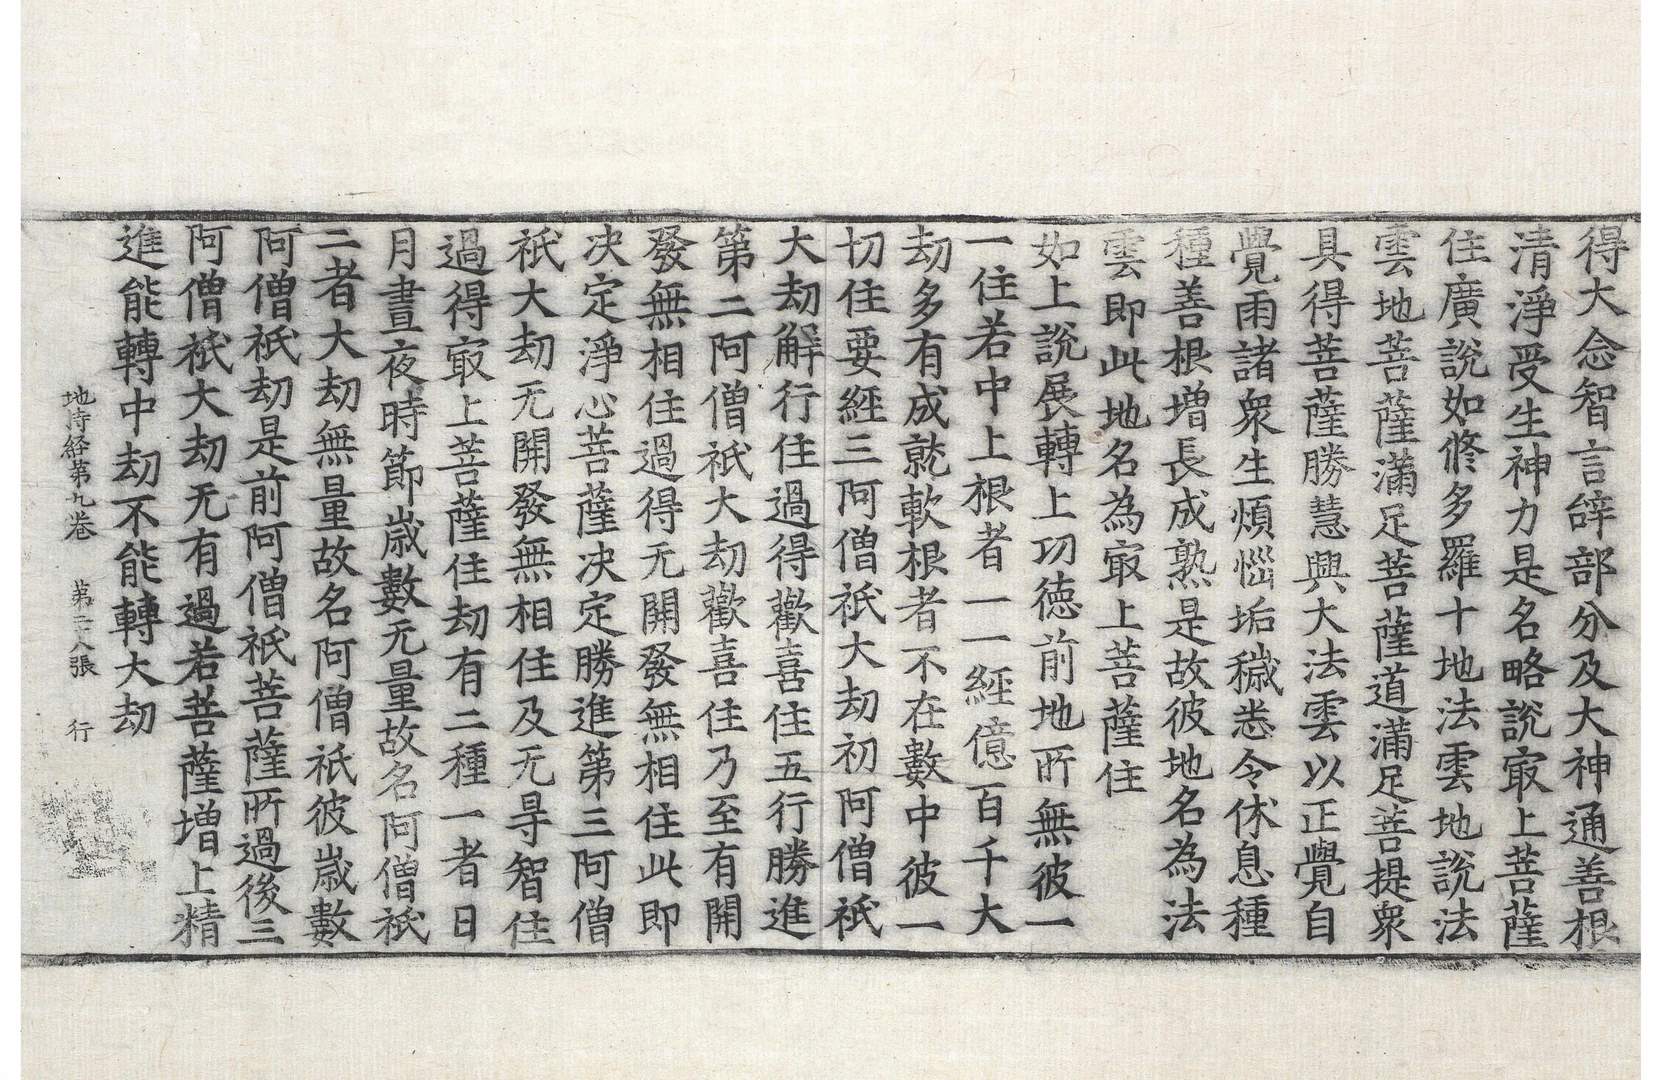 得大念智言辝部分及大神通善根
清淨受生神力是名略說㝡上菩薩
住廣說如修多羅十地法雲地說法
雲地菩薩滿足菩薩道滿足菩提衆
具得菩薩勝慧興大法雲以正覺自
覺雨諸衆生煩惱垢穢悉令休息種
種善根增長成熟是故彼地名為法
雲即此地名為㝡上菩薩住
如上說展轉上功德前地所無彼一
一住若中上根者一一經億百千大
劫多有成就軟根者不在數中彼一
切住要經三阿僧祇大劫初阿僧祇
大劫解行住過得歡喜住五行勝進
第二阿僧祇大劫歡喜住乃至有開
發無相住過得无開發無相住此即
决定淨心菩薩决定勝進第三阿僧
祇大劫无開發無相住及无㝵智住
過得㝡上菩薩住劫有二種一者日
月晝夜時節歲數无量故名阿僧祇
二者大劫無量故名阿僧祇彼歲數
阿僧祇劫是前阿僧祇菩薩所過後三
阿僧祇大劫无有過若菩薩增上精
進能轉中劫不能轉大劫
地持経第九卷 第二人張 行